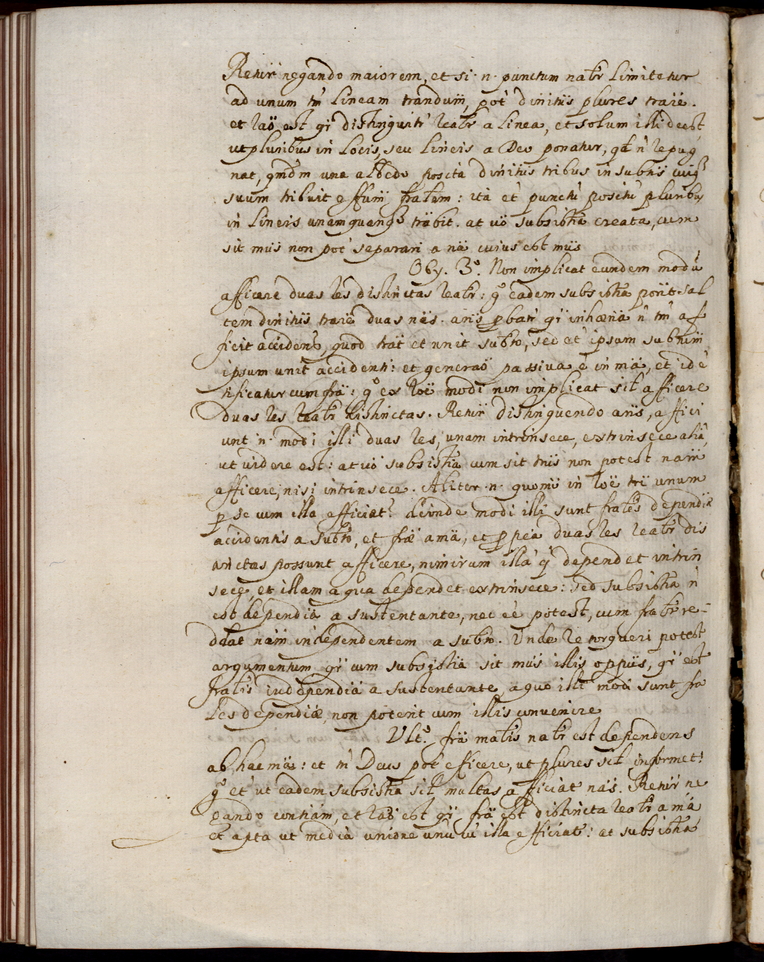 Retur negando maiorem, et si n. punctum natr limitetur
ad unum tm lineam tranduiĩ, pot divinitũs plures traie.
et rao est qr distinguitr realr a linea, et solum illi deest,
ut pluribus in locis, seu lineis a Deo ponatur, qd n repug
nat, qmdm una albedo posita divinitus tribus in subtis cuiqs
suum tribuit effum fralem: ita et puncti positi pluribs
in lineis unamquamqs trabit. at vo subsistia creata, cum
sit mus non pot separari a na cuius est mus
Obj. 3o. Non implicat eundem modũ
afficere duas res distinctas realr: go eadem subsistia porit sal
tem divinitus traie duas nãs. ans pbatr qr inhæna n tm af
ficit accidens, quod trat et unit subto, sed et ipsum subtum
ipsum unit accidenti: et generao passiva e in ma, et idẽ
tificatur cum frã: go ex roe modi non implicat sil afficere
duas res realr distinctas. Retur distinguendo ans, affici
unt n. modi illi duas res, unam intrinsece, extrinsece aliã,
ut videre est: at vo subsistia cum sit mus non potest nam
afficere, nisi intrinsece. Aliter n. quomo in roe tri unum
p se cum illa efficiat? deinde modi illi sunt frales dependiæ
accidentis a subto, et fræ a ma, et p pea duas res realr dis
tinctas possunt afficere, nimirum illã q dependet intrin
sece, et illam a qua dependet extrinsece: sed subsistia n
est dependia a sustentante, nec eẽ potest, cum fralr re-
ddat nam independentem a subto. Unde retorqueri potest
argumentum qr cum subsistia sit mus illis oppus, qr est
fralis independia a sustentante, a quo illi modi sunt fra
les dependiæ, non poterit cum illis convenire
Ulto. frã matis natr est dependens
ab hac mã: et tn Deus pot efficere, ut plures sil informet:
go et ut eadem subsistia sil multas afficiat nãs. Retur ne
gando contiam, et rao est qr frã est distincta realr a mã
et apta ut mediã unione unũ cũ illa efficiat: at subsistia